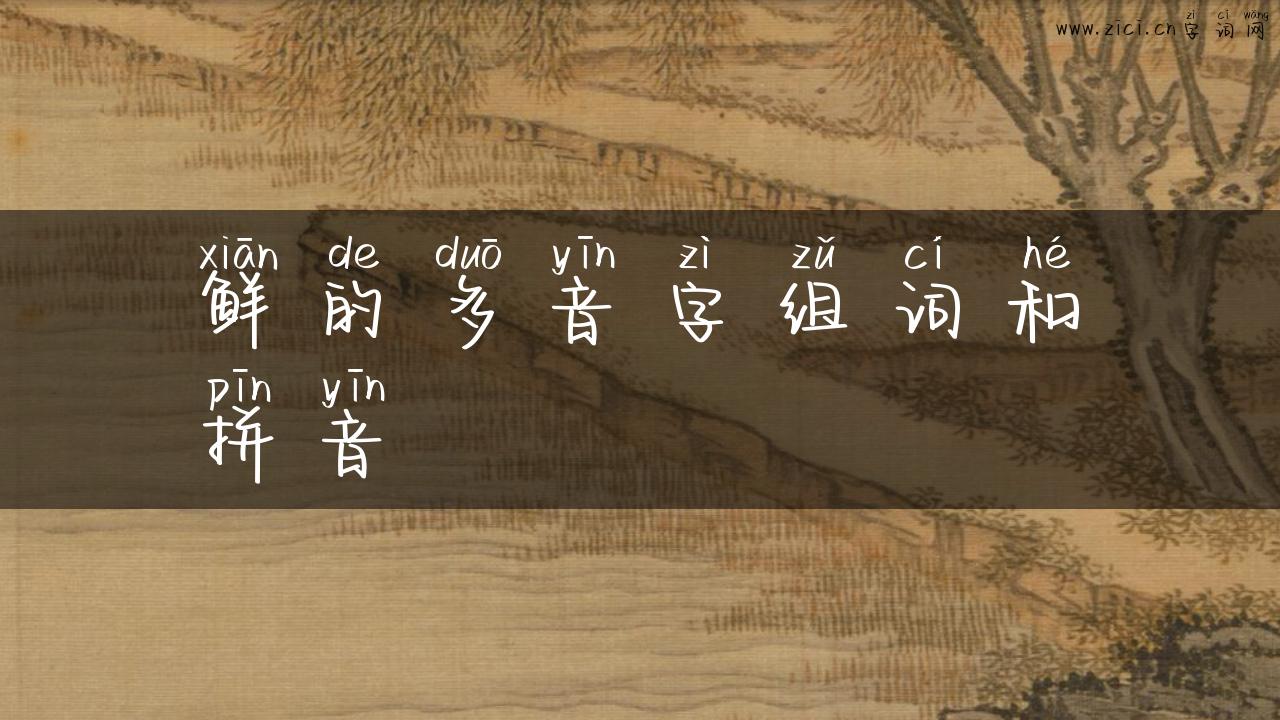 zì cí wǎng
www.zici.cn字词网
xiān de duō yīn zì zǔ cí hé
鲜的多音字组词和
pīn yīn
拼音